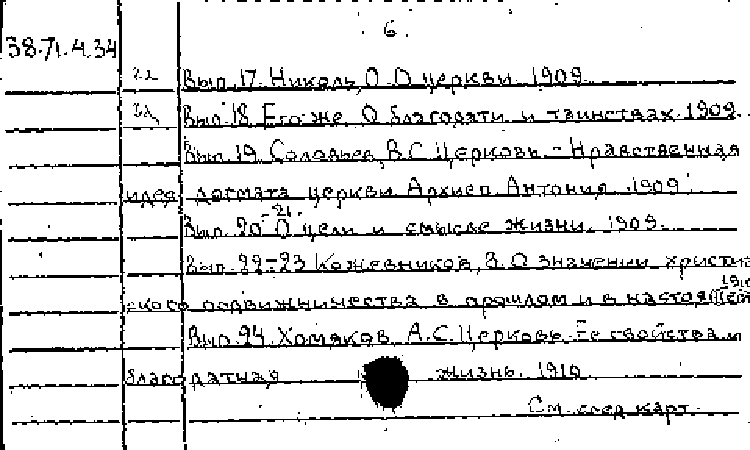 6.
38.71.4.34
22 Вып. 17. Никель, О. О церкви. 1909.
22 Вып. 18. Его же. О благодати и таинствах. 1909.
Вып. 19. Соловьев, В.С. Церковь. - Нравственная
идея догмата церкви Архиеп. Антония. 1909.
Вып. 20-21. О цели и смысле жизни. 1909.
Вып. 22-23 Кожевников, В. О значении христиан
ского подвижничества в прошлом и в настоящем 1910
Вып. 24. Хомяков, А.С. Церковь. Ее свойства и
благодатная жизнь. 1910.
См. след. карт.